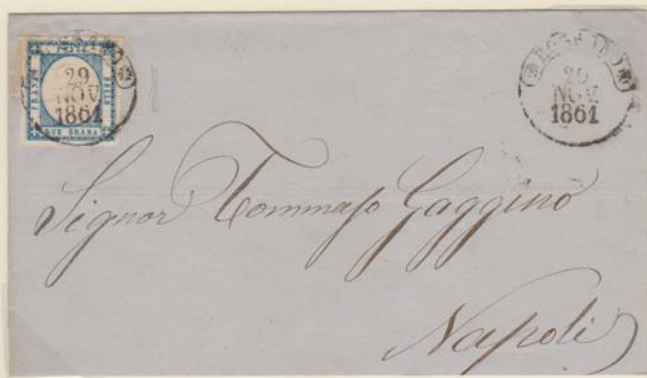 29
NOV
1861
DUE GRANA
NOV
1861
Signor Tommaso Gaggino
Napoli